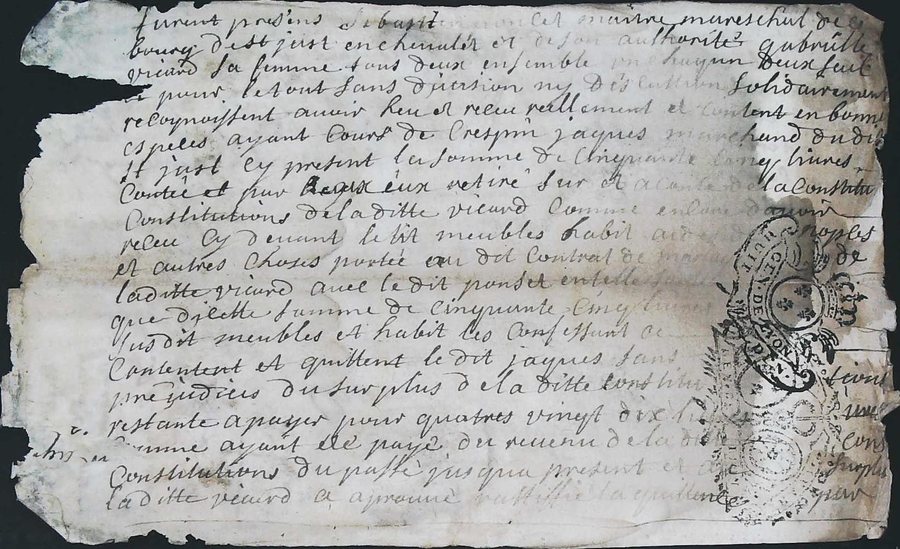 furent presens Sebastien ponset maitre mareschal de ce
bourg de st just en chevalet et de son authorité gabrielle
vicard sa femme tous deux ensemble un chaqun deux seul
et pour le tout sans division ny discution solidairement
recognoissent avoir heu et receu reellement et content en bonne
especes ayant Cours de Crespin jaques marchand du dit
st just Cy present la somme de Cinquante Cinq livres
Contée et par eux retiré sur et a conte de la Constitu
Constitutions de la ditte vicard Comme encore d'avoir
receu Cy devant le lit meubles habit
et autres Choses portée au dit Contrat de mariage de
la ditte vicard avec le dit ponset
que dicelle somme de Cinquante Cinq livres
susdit meubles et habit les Confessant ce
Contentent et quittent le dit jaques sans
prejudices du surplus de la ditte constitu tions
restante a payer pour quatres vingt dix livres
comme ayant eté payé du revenu de la ditte
Constitutions du passé jusqua present et
la ditte vicard a aprouvé rattiffié la quittence par
HUIT
DEN